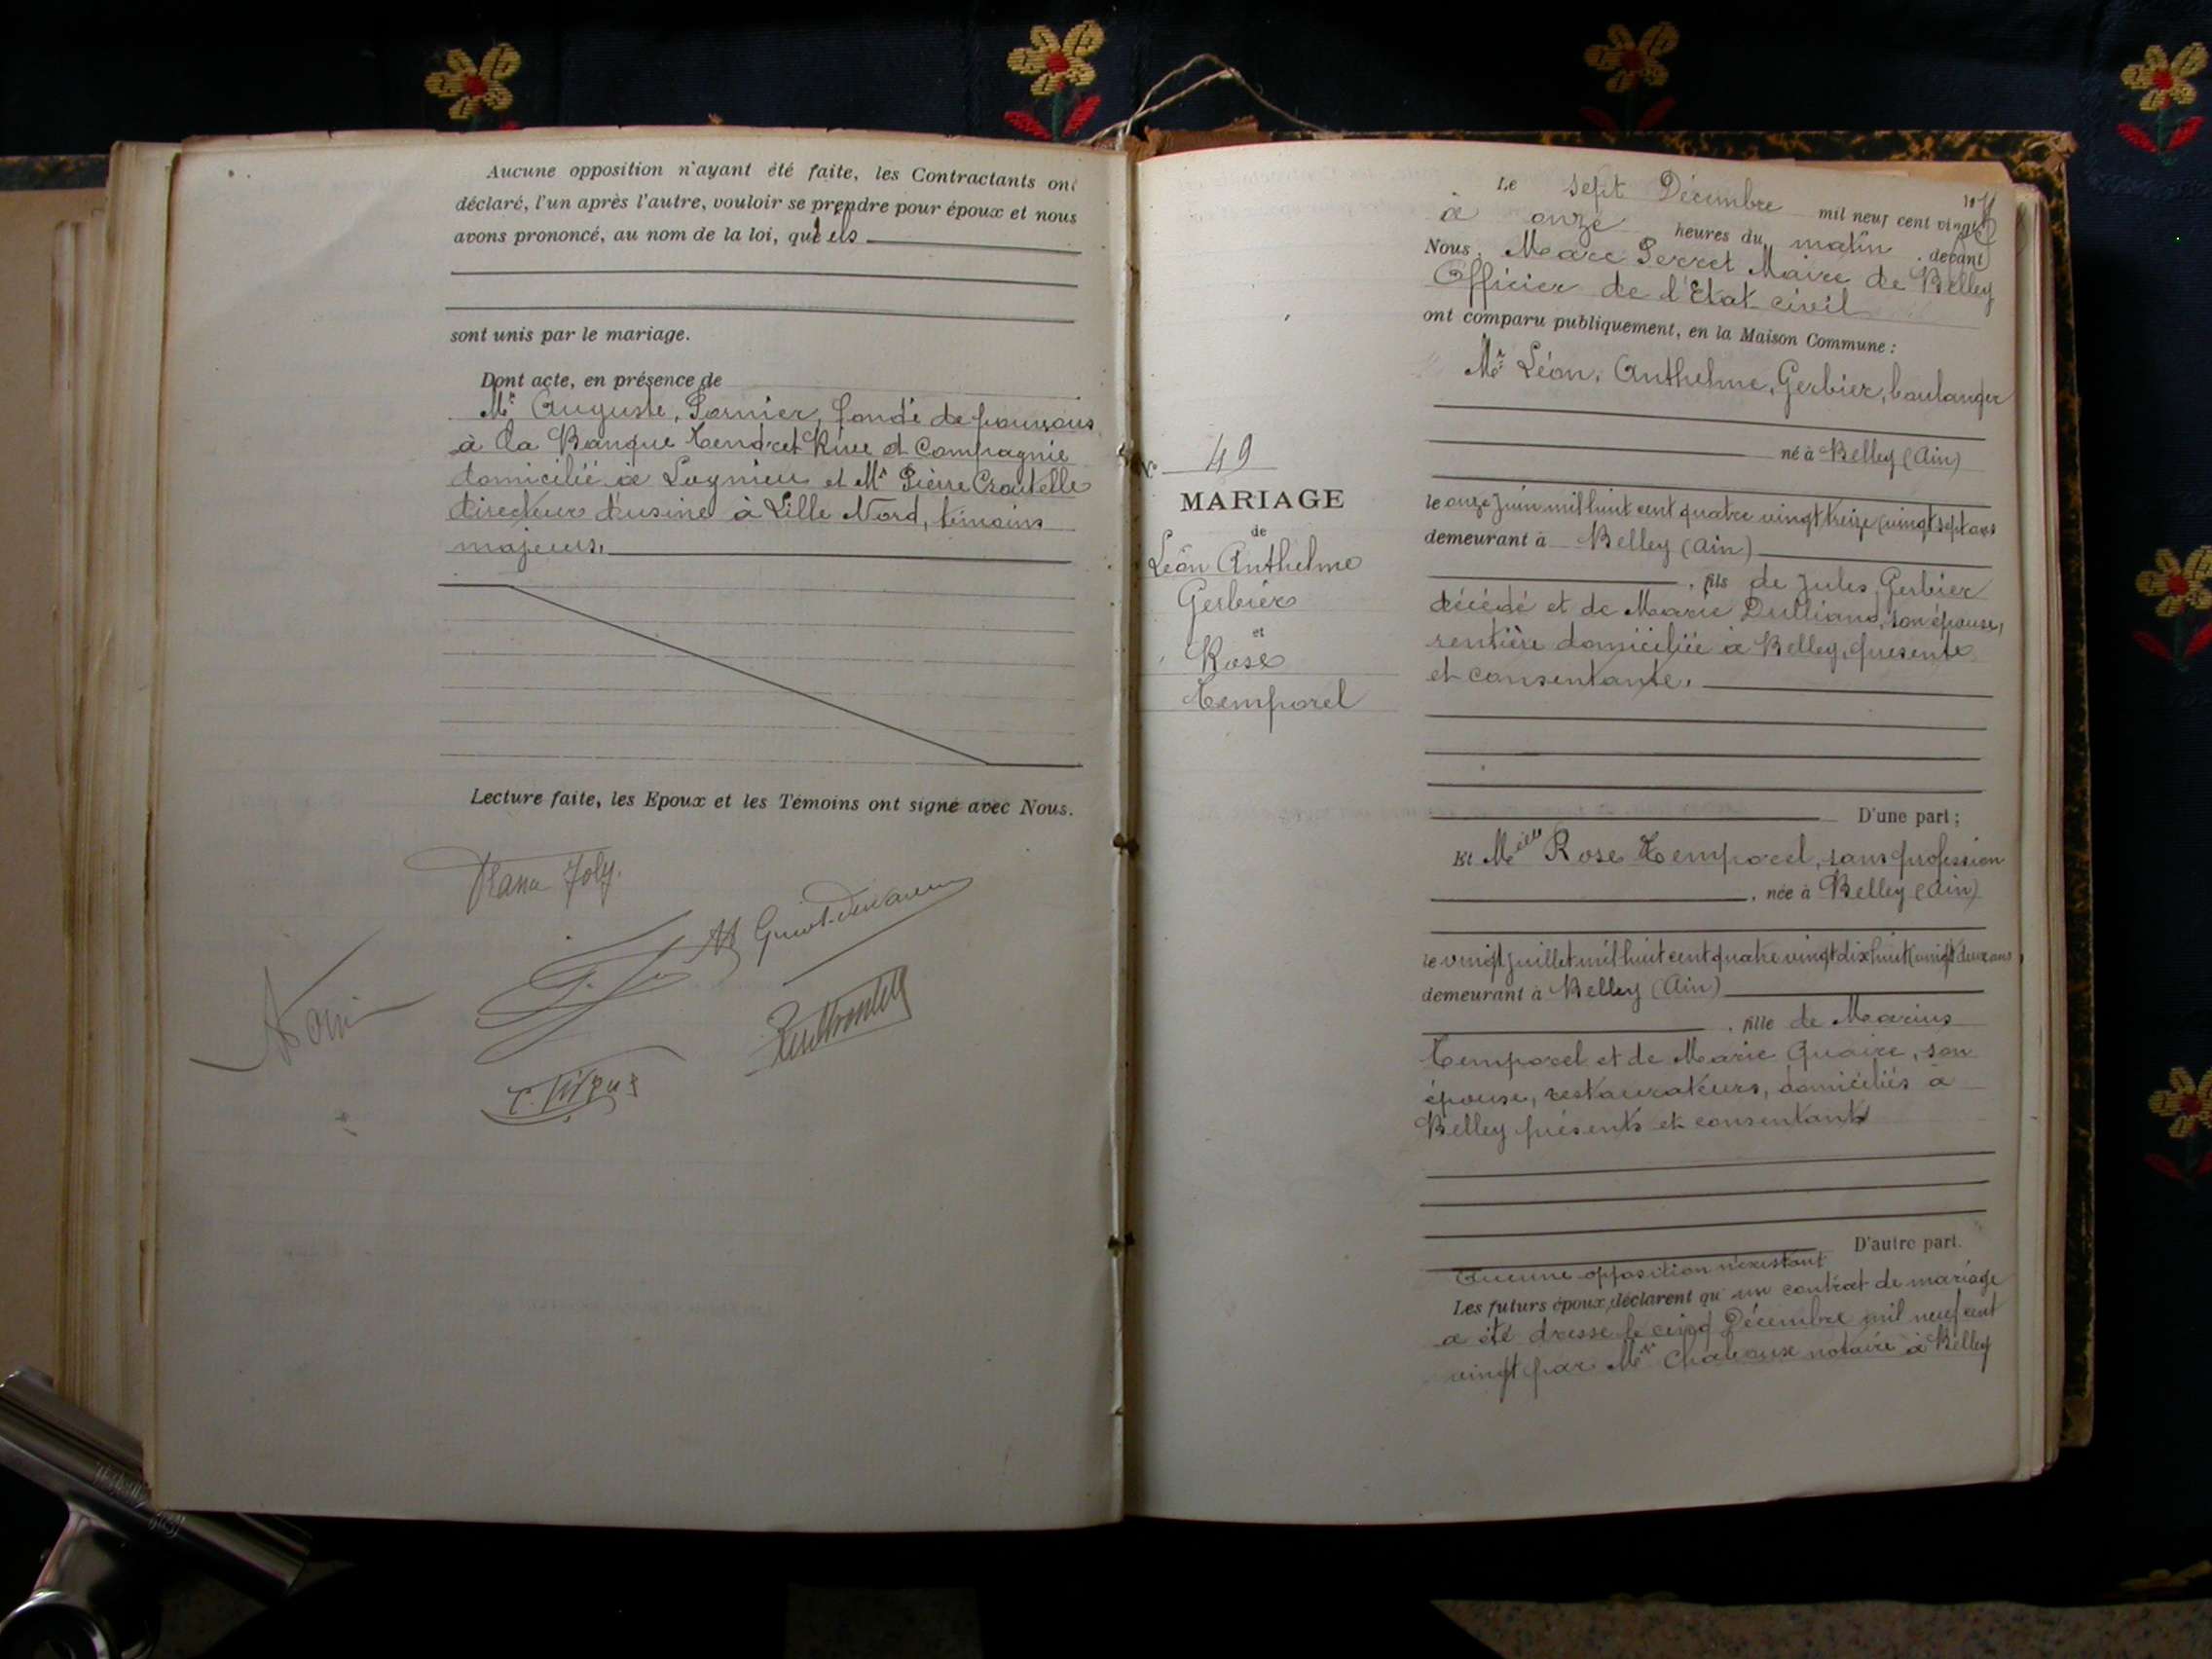 Aucune opposition n'ayant été faite, les Contractants ont
déclaré, l'un après l'autre, vouloir se prendre pour époux et nous
avons prononcé, au nom de la loi, qu'ils
sont unis par le mariage.
Dont acte, en présence de
Mr Auguste, Garnier, fondé de pouvoirs
à la Banque Tendret Rive et Compagnie
domicilié à Lagnieu et Mr Pierre Croutelle
directeur d'usine à Lille Nord, témoins
majeurs.
Lecture faite, les Epoux et les Témoins ont signé avec Nous.
Joly.
No 49
MARIAGE
de
Léon Anthelme
Gerbier
et
Rose
Temporel
Le sept Décembre mil neuf cent vingt
à onze heures du matin, devant
Nous, Marc Perret Maire de Belley
Officier de l'Etat civil
ont comparu publiquement, en la Maison Commune :
Mr Léon, Anthelme, Gerbier, boulanger
né à Belley (Ain)
le onze juin mil huit cent quatre vingt treize (vingt sept ans
demeurant à Belley (Ain)
, fils de Jules Gerbier
décédé et de Marie Dulliand, son épouse,
rentière domiciliée à Belley, présente
et consentante.
D'une part ;
Et Melle Rose Temporel, sans profession
, née à Belley (Ain)
le vingt juillet mil huit cent quatre vingt dix huit (vingt deux ans)
demeurant à Belley (Ain)
, fille de Marius
Temporel et de Marie Quaire, son
épouse, restaurateurs, domiciliés à
Belley présents et consentants
D'autre part.
Aucune opposition n'existant
Les futurs époux déclarent qu'un contrat de mariage
a été dressé le cinq Décembre mil neuf cent
vingt par Me notaire à Belley